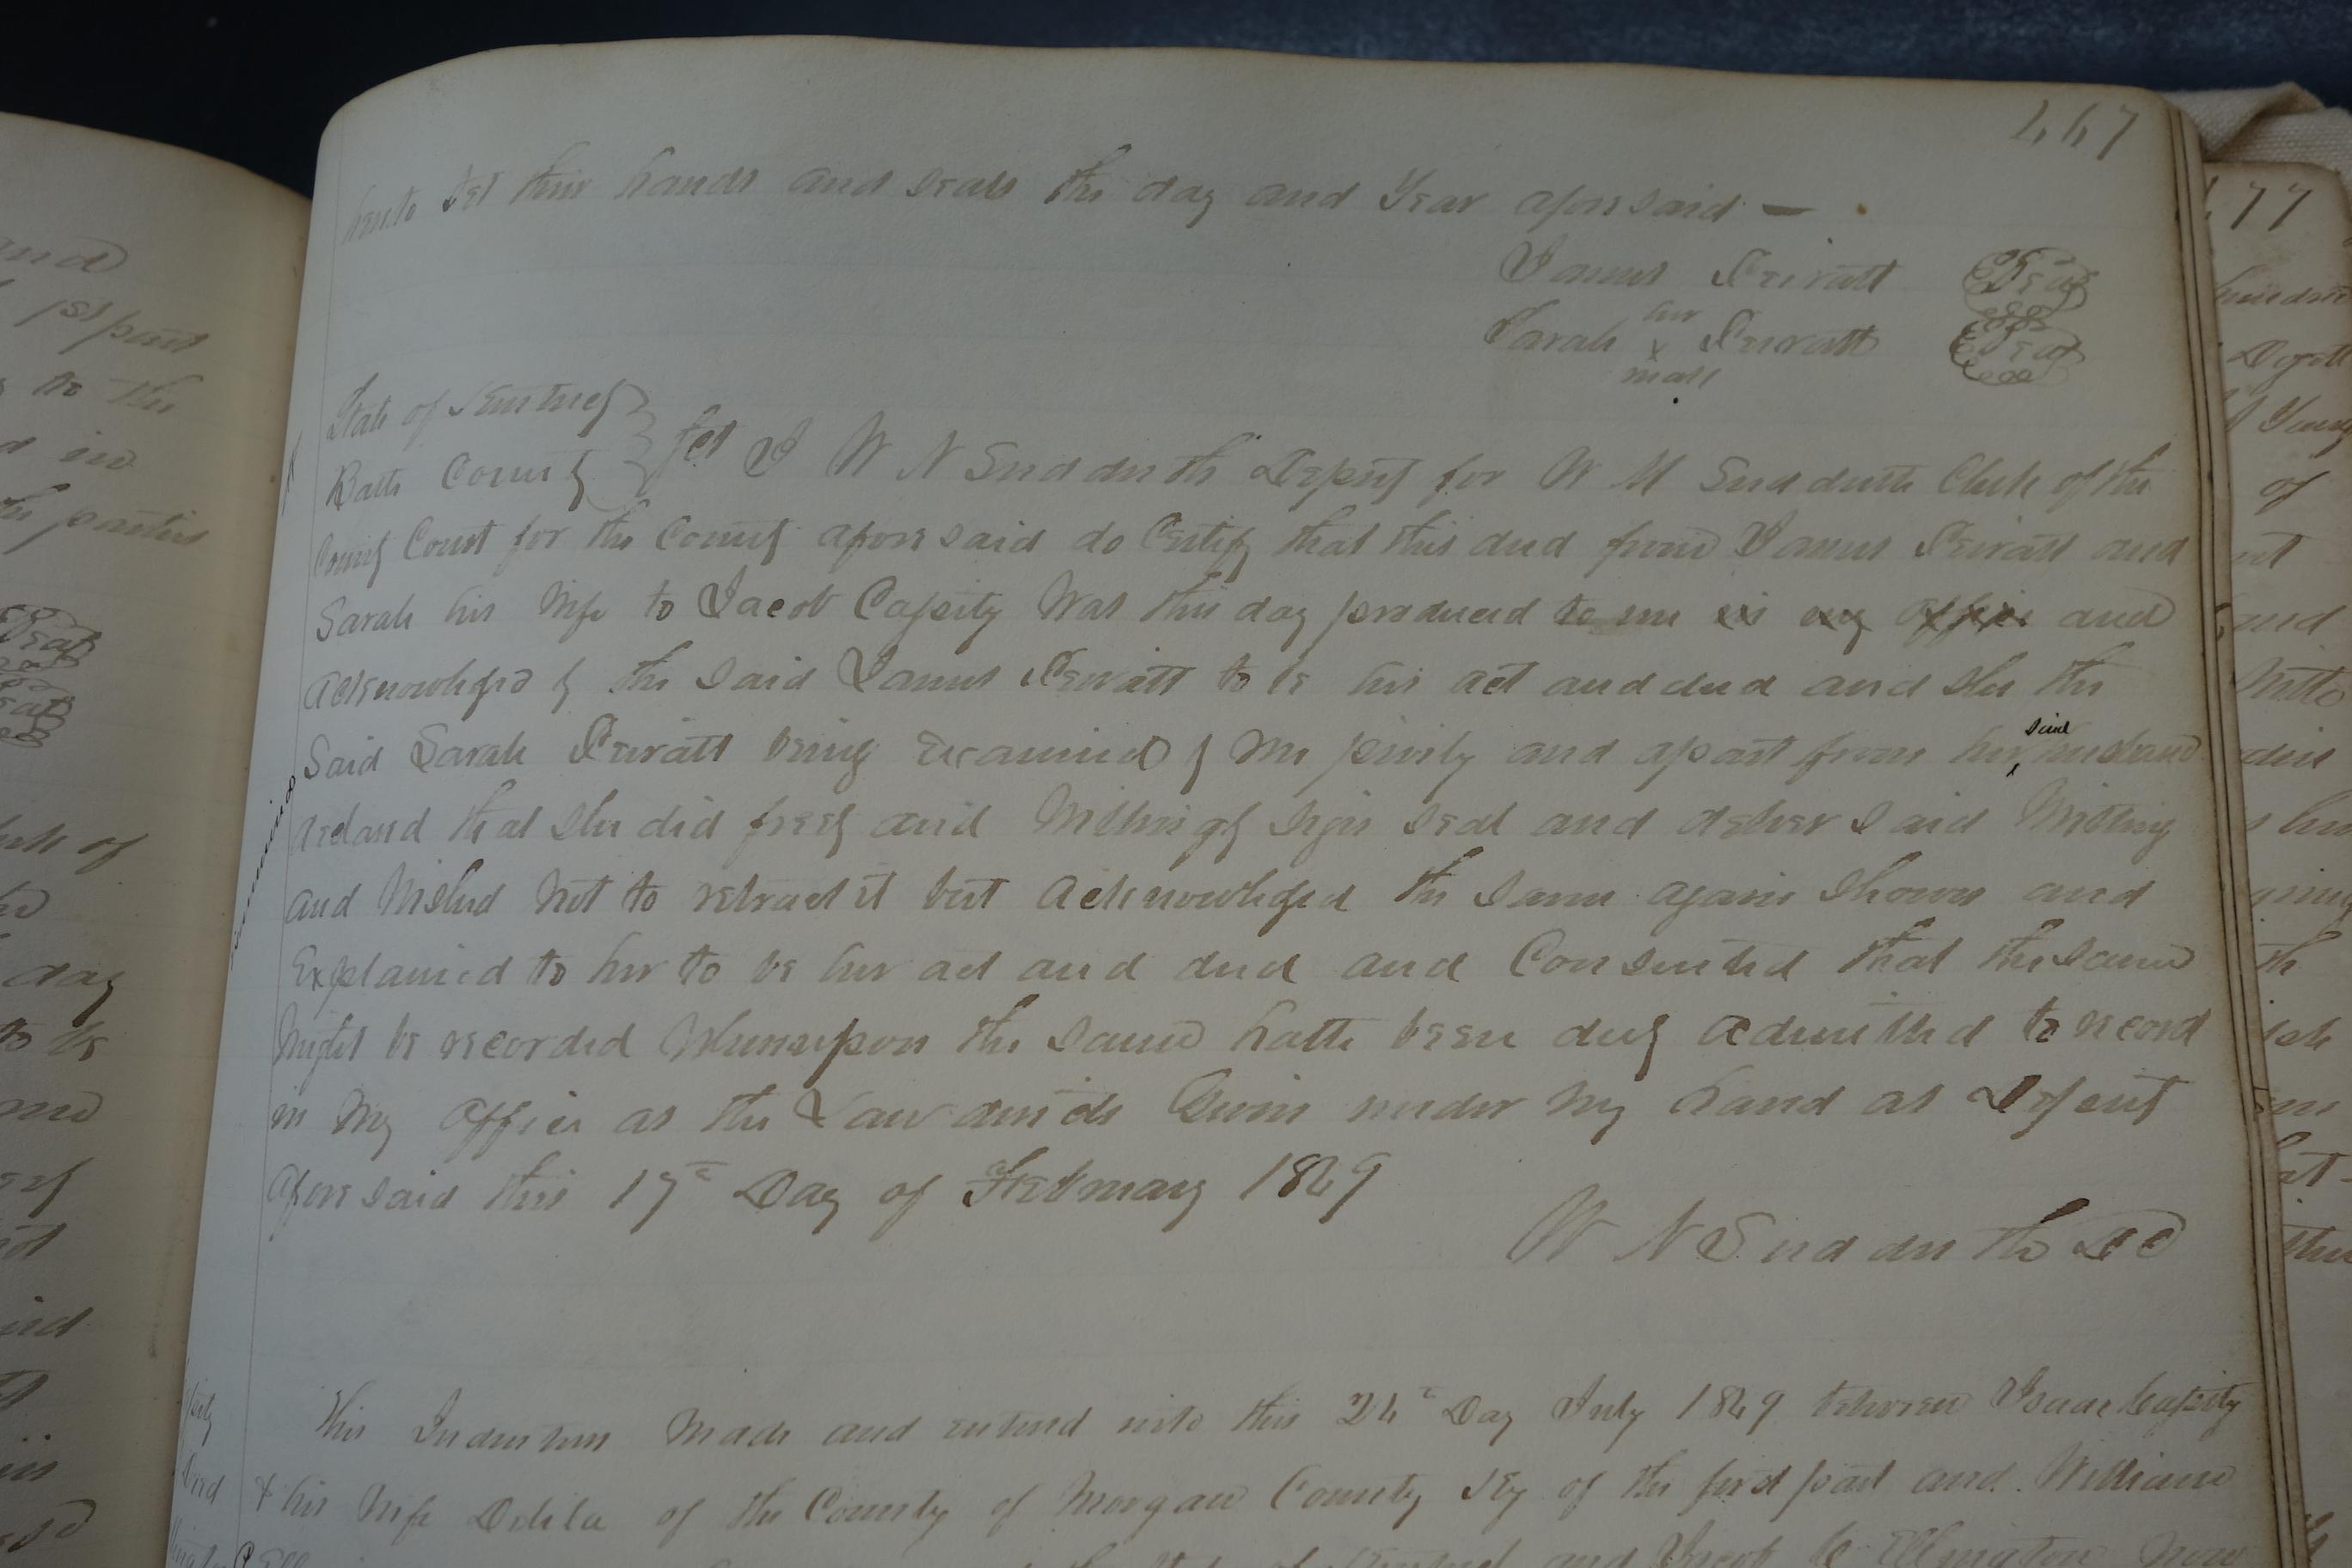 467
hereto set their hands and seals the day and Year aforesaid —
James Peiratt Seal
her
Sarah x Peiratt Seal
mark
State of Kentucky
Bath County } Sct I W N Sudduth Deputy for W M Sudduth Clerk of the
County Court for the County aforesaid do Certify that this deed from James Peiratt and
Sarah his Wife to Jacob Cassity Was this day produced to me in my office and
Acknowledged by the said James Peiratt to be his act and deed and she the
said
Said Sarah Peiratt being Examined by Me privily and apart from her husband
declared that she did freely and Willingly sign seal and deliver said Writing
and Wished Not to retract it but acknowledged the same again Shown and
Explained to her to be her act and deed and Consented that the same
Might be recorded Whereupon the same hath been duly admitted to record
in My Office as the Law directs Given under My hand as Deputy
aforesaid this 17th Day of February 1849
W N Sudduth DC
This Indenture Made and entered into this 24th Day July 1849 between Isaac Cassity
& his Wife Delila of the County of Morgan County Ky of the first part and William
and Jacob C Ellington
and
1st part
to the
d in
the parties
Seal
Seal
of
day
to be
477
of
and
th